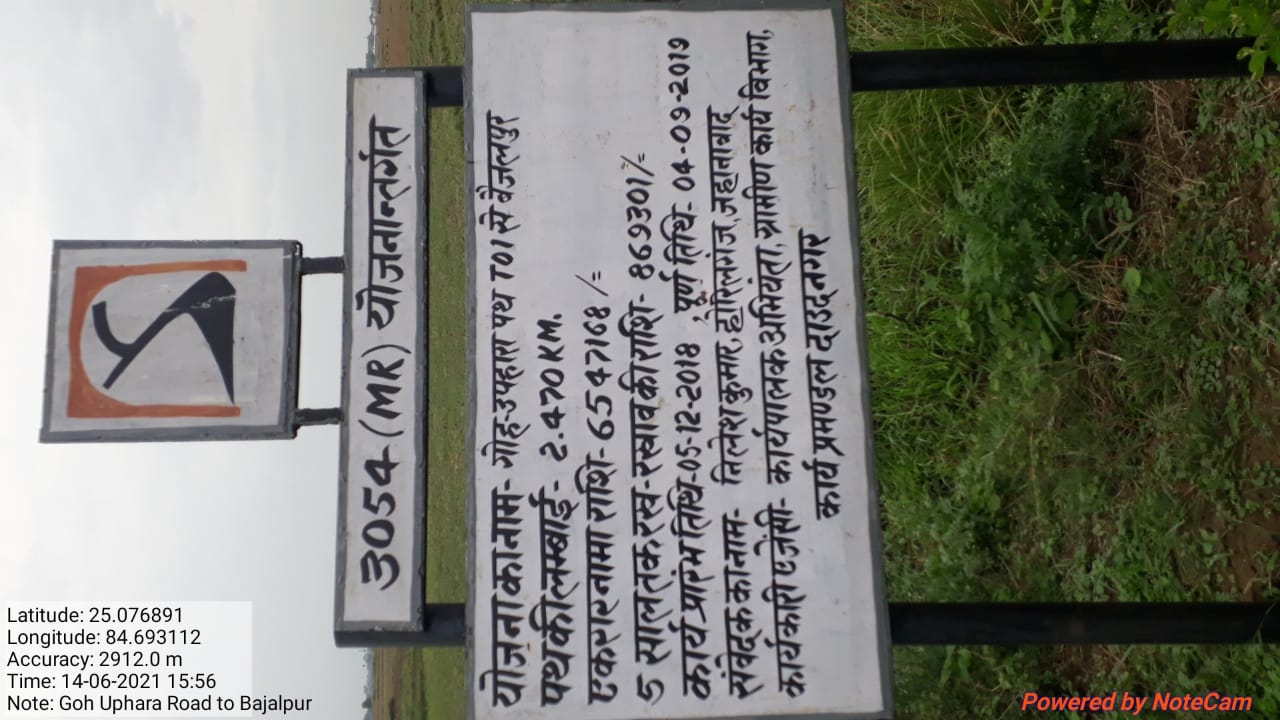 3054 (MR) योजनान्तर्गत
योजना का नाम- गोह-उपहारा पथ T01 से बैजलपुर
पथ की लम्बाई- 2.470 KM.
एकरारनामा राशि- 6547168/=
5 साल तक रख-रखाव की राशि- 869301/=
कार्य प्रारम्भ तिथि-05-12-2018, पूर्ण तिथि- 04-09-2019
संवेदक का नाम- कुमार, होरिलगंज, जहानाबाद
कार्यकारी एजेंसी- कार्यपालक अभियंता, ग्रामीण कार्य विभाग,
कार्य प्रमण्डल दाउदनगर
Latitude: 25.076891
Longitude: 84.693112
Accuracy: 2912.0 m
Time: 14-06-2021 15:56
Note: Goh Uphara Road to Bajalpur
Powered by NoteCam